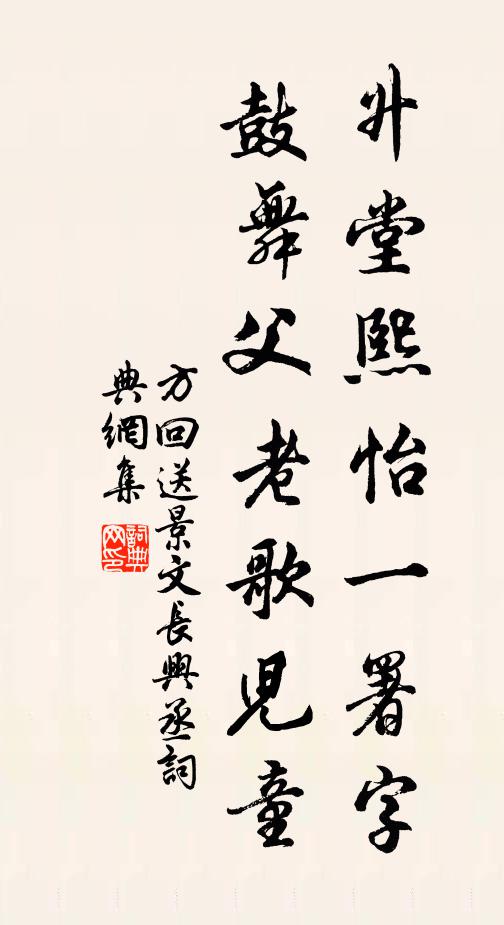 升堂熙怡一署字
鼓舞父老歌兒童
方回送景文長興丞詞
典網集
詞典網印